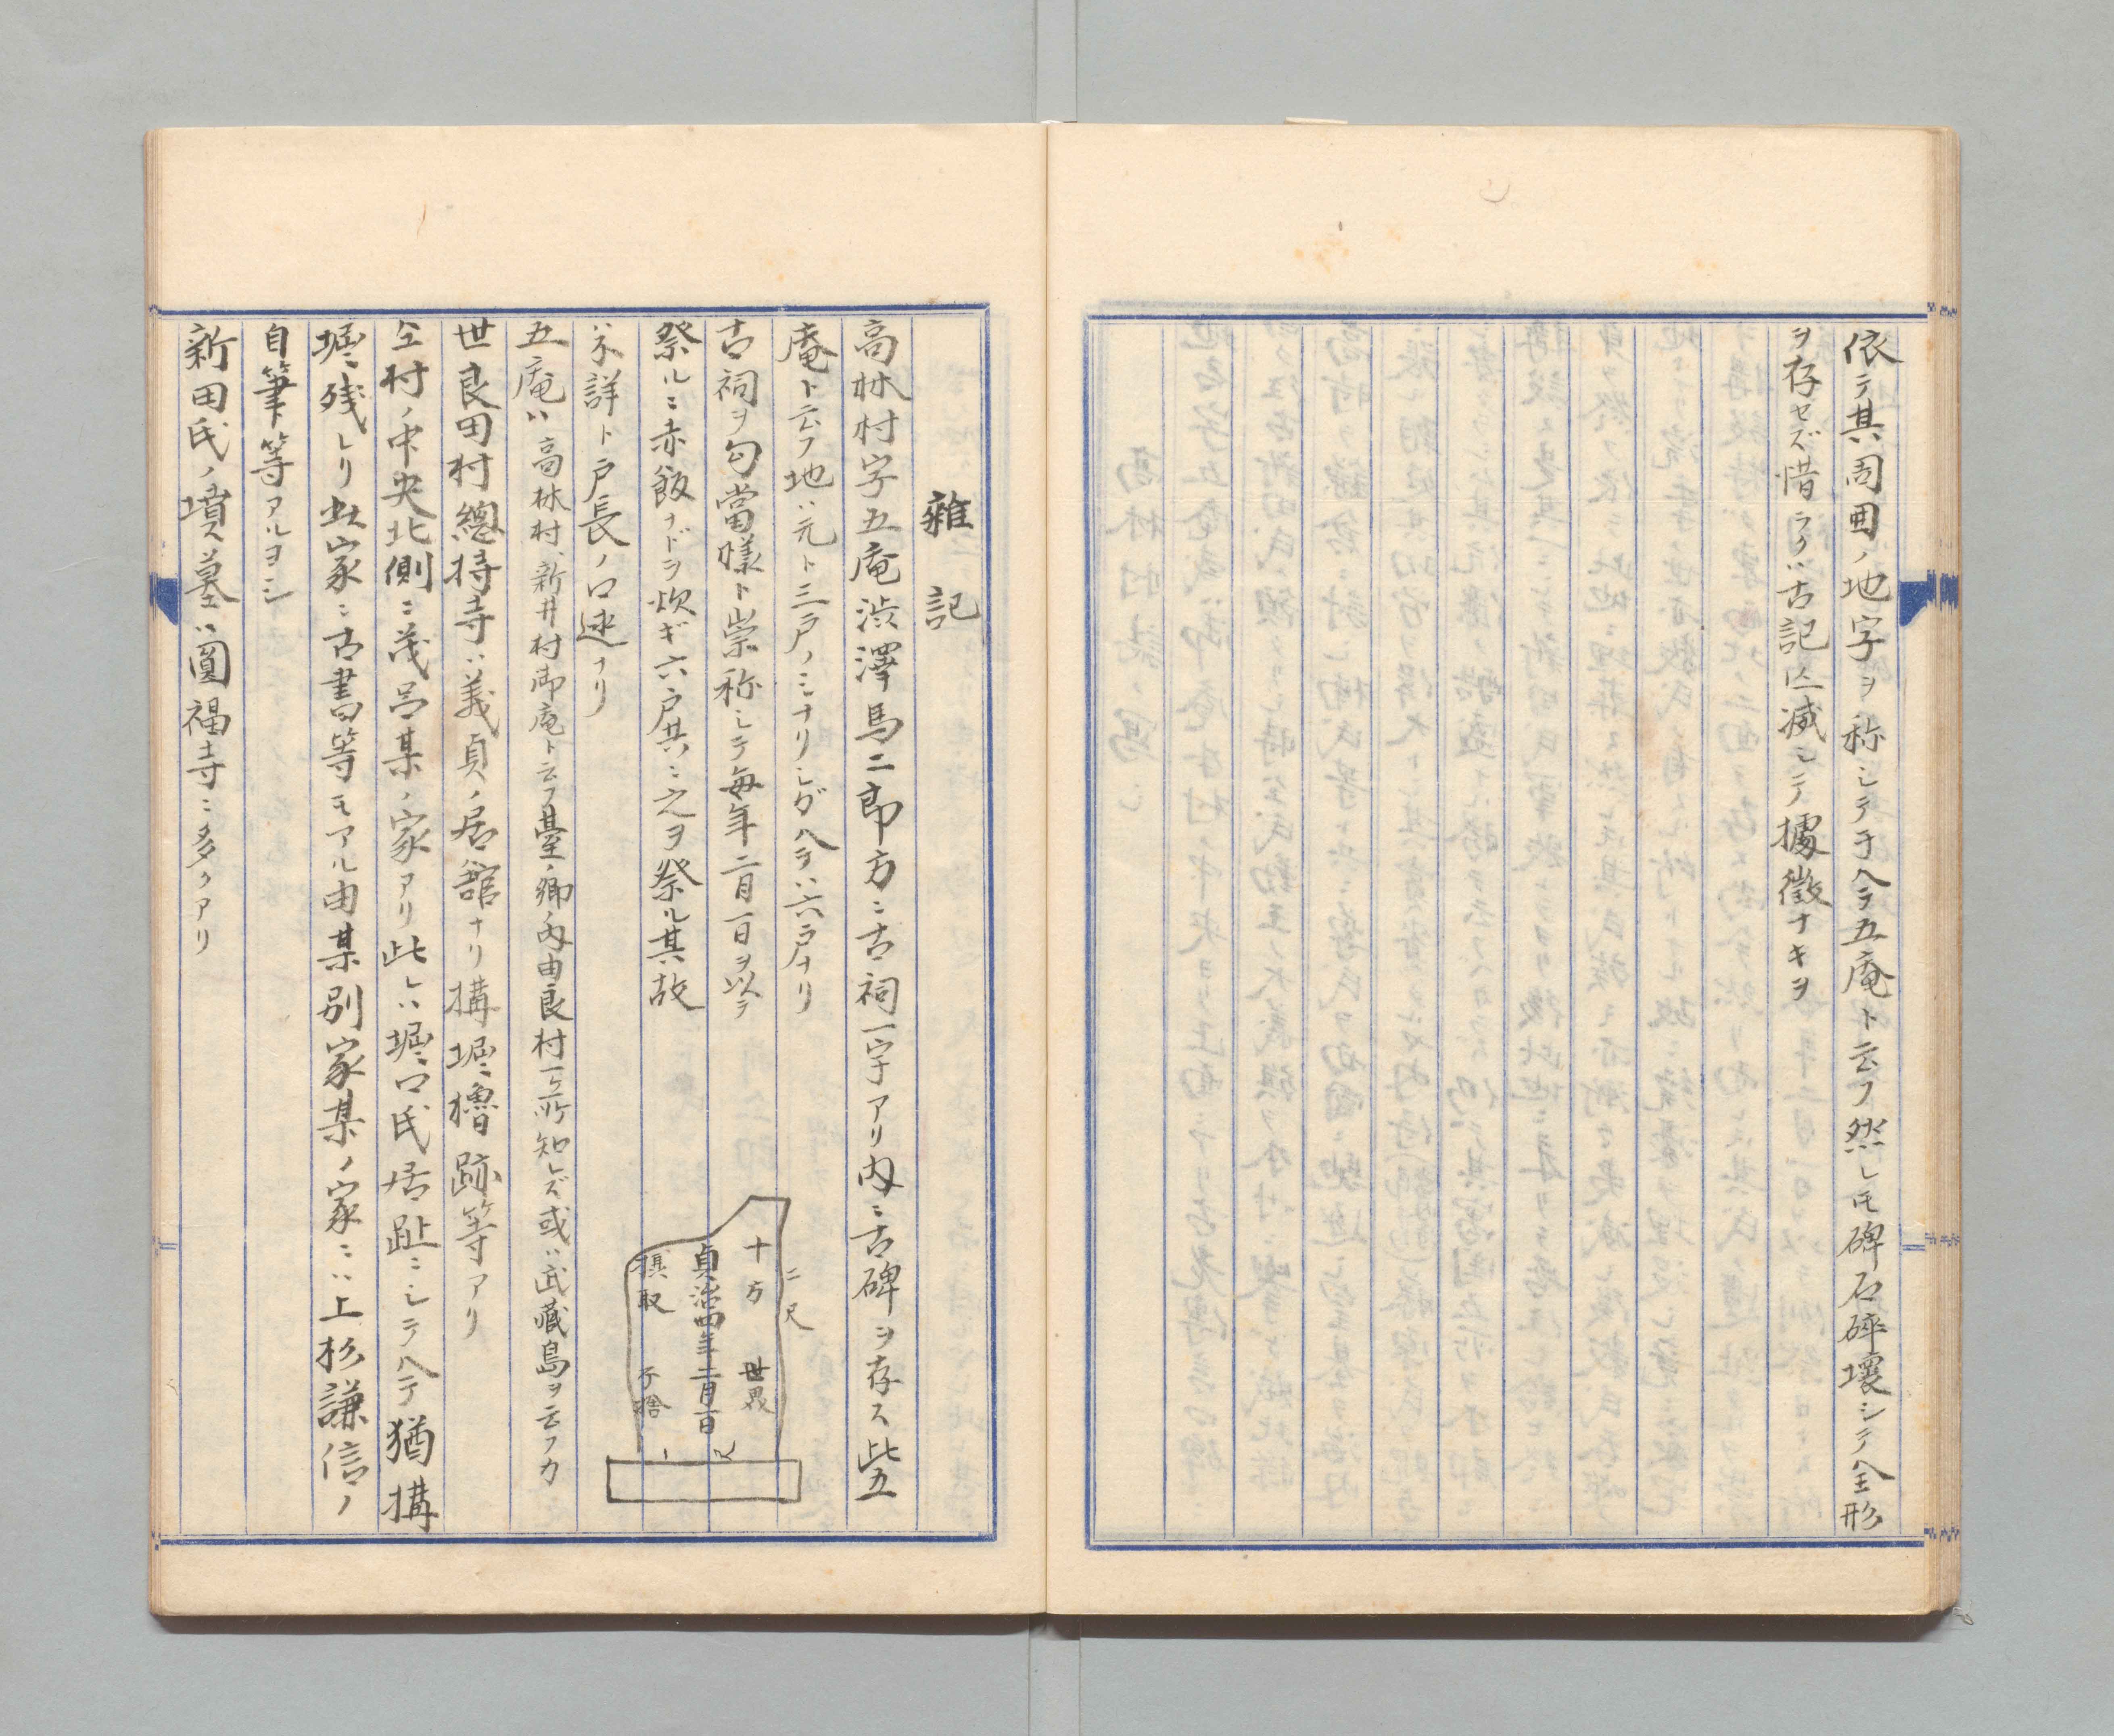 依テ其周囲ノ地字ヲ称シテ于今五庵ト云フ然レ𪜈碑石砕壊シテ全形
ヲ存セズ惜ラクハ古記亡滅シテ據徴ナキヲ
雜記
高林村字五庵渋澤馬二郎方ニ古祠一宇アリ内ニ古碑ヲ存ス此五
庵ト云フ地ハ元ト三戸ノミナリシガ今ハ六戸ナリ
古祠ヲ勾當様ト崇称シテ毎年二月一日ヲ以テ
祭ルニ赤飯ナドヲ炊ギ六戸共ニ之ヲ祭ル其故
ハ不詳ト戸長ノ口述ナリ
二尺
十方世界
貞治四年二月一日
摂取不捨
五庵ハ高林村、新井村御庵ト云フ臺ノ郷ノ内由良村一ヶ所知レズ或ハ武藏島ヲ云フカ
世良田村總持寺ハ義貞ノ居舘ナリ搆堀櫓跡等アリ
仝村ノ中央北側ニ茂呂某ノ家アリ此レハ堀口氏居趾ニシテ今猶搆
堀残レリ此家ニ古書等モアル由某別家某ノ家ニハ上杉謙信ノ
自筆等アルヨシ
新田氏ノ墳墓ハ圓福寺ニ多クアリ